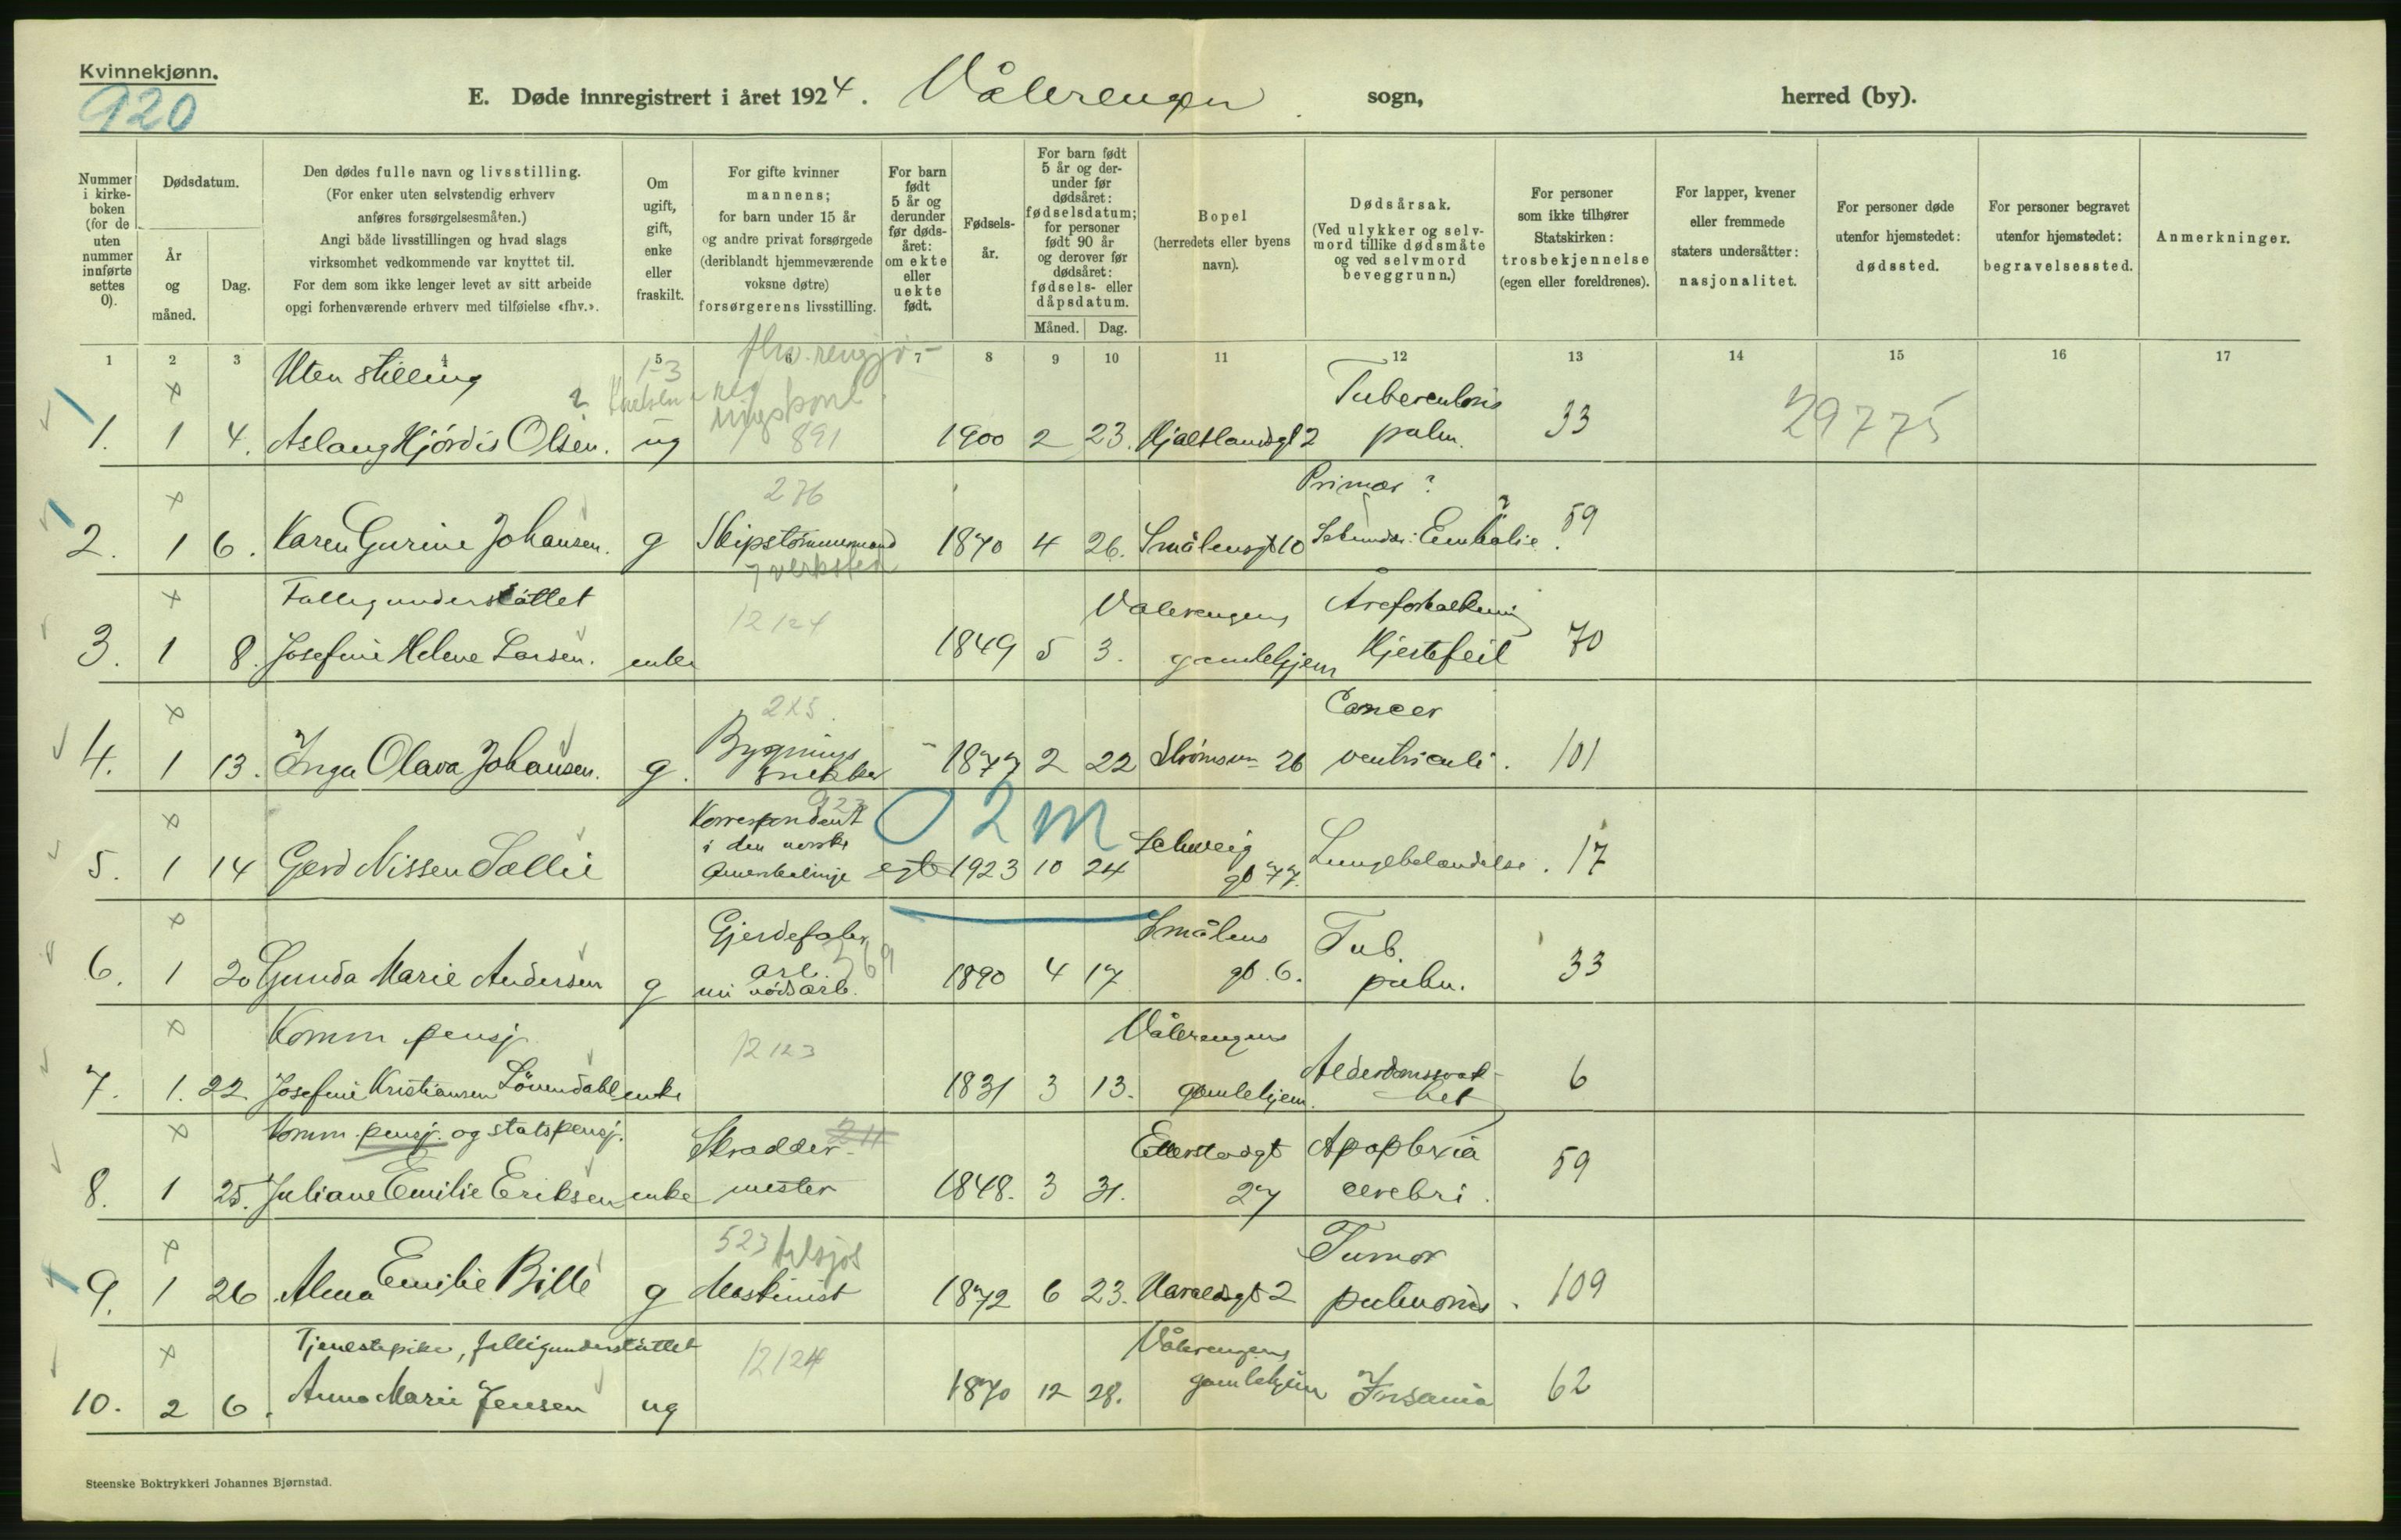 Kvinnekjønn.
920
E. Døde innregistrert i året 1924. Vålerengen sogn, herred (by).
Nummer i kirkeboken (for de uten nummer innførte settes 0).
Dødsdatum.
År og måned.
Dag.
Den dødes fulle navn og livsstilling.
(For enker uten selvstendig erhverv
anføres forsørgelsesmåten.)
Angi både livsstillingen og hvad slags
virksomhet vedkommende var knyttet til.
For dem som ikke lenger levet av sitt arbeide
opgi forhenværende erhverv med tilføielse «fhv.».
Om ugift, gift, enke eller fraskilt.
For gifte kvinner
mannens;
for barn under 15 år
og andre privat forsørgede
(deriblandt hjemmeværende
voksne døtre)
forsørgerens livsstilling.
For barn født 5 år og derunder før dødsåret: om ekte eller uekte født.
Fødsels-
år.
For barn født
5 år og der-
under før
dødsåret:
fødselsdatum;
for personer
født 90 år
og derover før
dødsåret:
fødsels- eller
dåpsdatum.
Måned. Dag.
Bopel
(herredets eller byens
navn).
Dødsårsak.
(Ved ulykker og selv-
mord tillike dødsmåte
og ved selvmord
beveggrunn.)
For personer
som ikke tilhører
Statskirken:
trosbekjennelse
(egen eller foreldrenes).
For lapper, kvener
eller fremmede
staters undersåtter:
nasjonalitet.
For personer døde
utenfor hjemstedet:
dødssted.
For personer begravet
utenfor hjemstedet:
begravelsessted.
Anmerkninger.
1 2 3 4 5 6 7 8 9 10 11 12 13 14 15 16 17
Uten stilling
fhv. rengjø-
Tuberculosis
1. 1 4. Aslaug Hjördis Olsen. ug 891 1900 2 23. Hjaltlandsgt 2 pulm. 33 29775
276 Primær ?
2. 1 6. Karen Gurine Johansen. g Skipstömmermand 1870 4 26. Smålensgt 10 Sekundær: Embolie. 59
verksted
Fattigunderstøttet 12124 Vålerengens Åreforkalkning
3. 1 8. Josefine Helene Larsen. enke 1849 5 3. gamlehjem Hjertefeil 70
Cancer
4. 1 13. Inga Olava Johansen. g. Bygnings snekker 1877 2 22 Strömsvn 26 ventriculi. 101
02m
Korrespondent
i den norske
5. 1 14 Gerd Nissen Sællie Amerikalinje egte 1923 10 24 Schweig gt 77. Lungebetændelse. 17
Gjerdefabr. Smålens Tub.
6. 1 20 Gunda Marie Andersen g arb. 369 nu nödsarb. 1890 4 17 gt. 6. pulm. 33
Komm. pensj. 12123 Vålerengens
7. 1. 22 Josefine Kristiansen Lövendahl enke 1831 3 13. gamlehjem. Alderdomssvak-het 6
Komm. pensj. og statspensj. Skrædder- Etterstadgt Apoplexia
8. 1 25. Juliane Emilie Eriksen enke mester 1848. 3 31. 27 cerebri. 59
523 Tumor
9. 1 26 Alma Emilie Bille g Maskinist 1872 6 23. Haraldsgt 2 pulmonis. 109
Tjenestepike, fattigunderstøttet 12124 Vålerengens
10. 2 6. Anna Marie Jensen ug 1870 12 28. gamlehjem Insania 62
Steenske Boktrykkeri Johannes Bjørnstad.